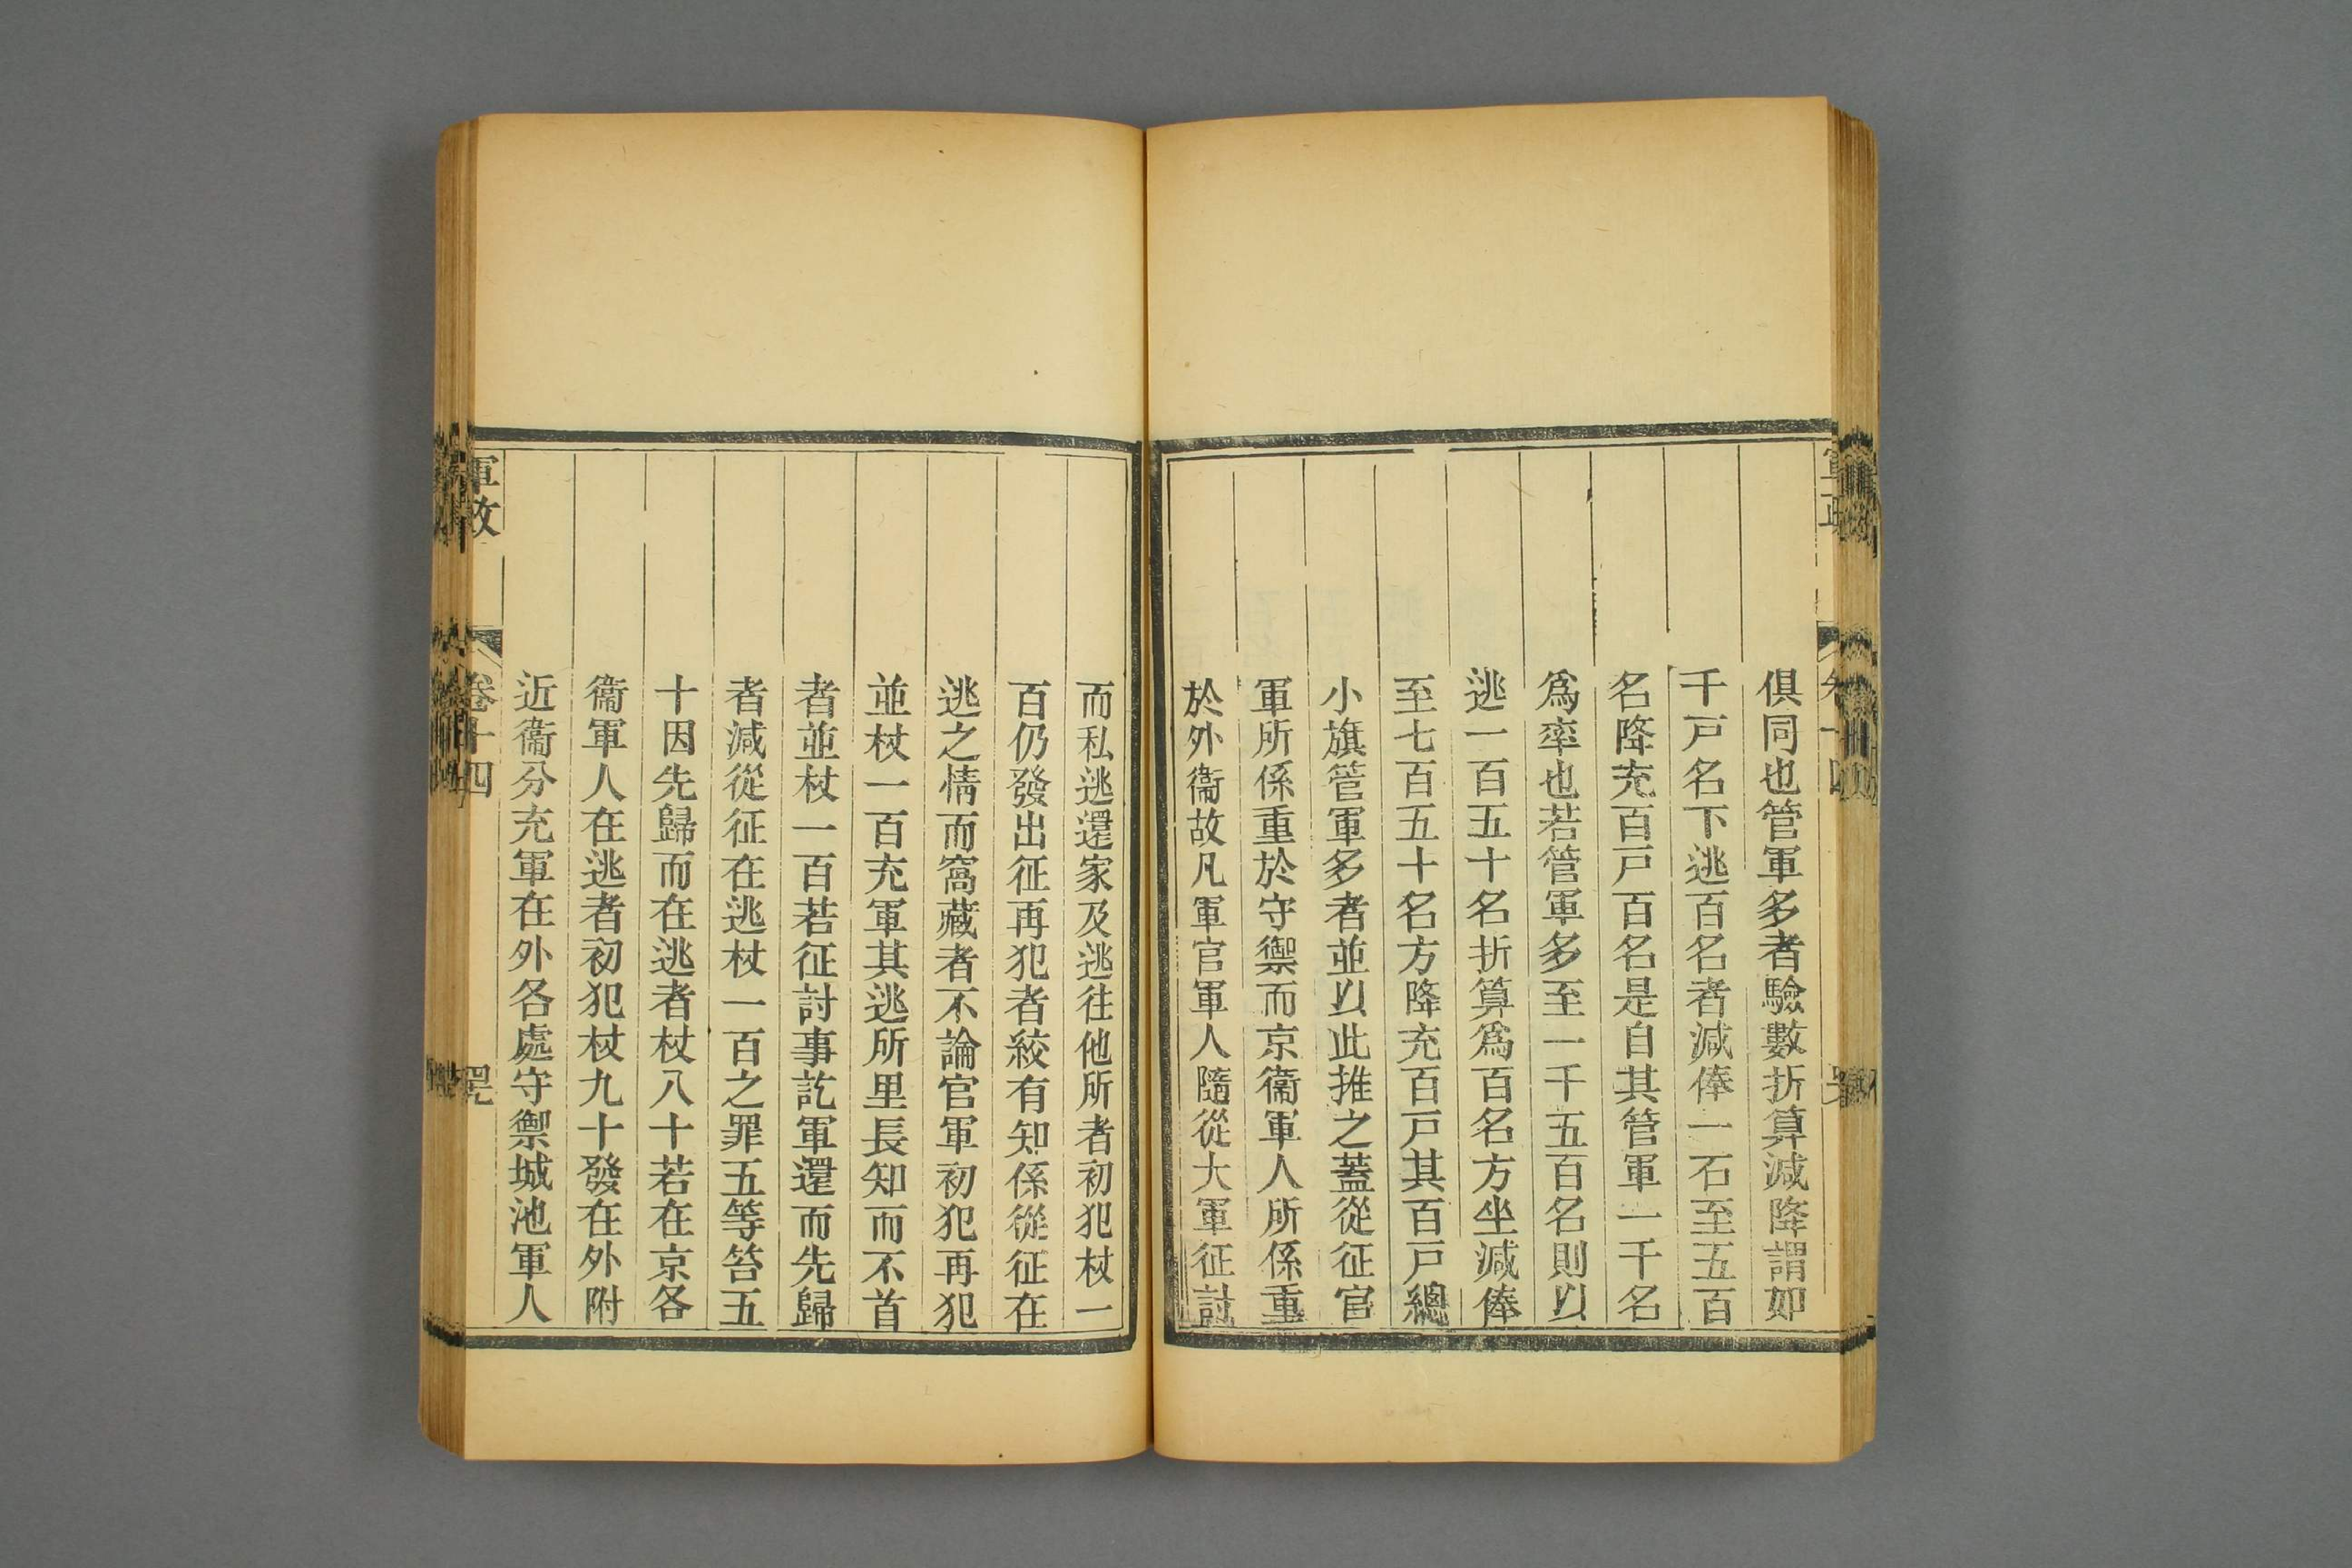 俱同也管軍多者驗數折算減降謂如
千戸名下逃百名者減俸一石至五百
名降充百戸百名是自其管軍一千名
爲率也若管軍多至一千五百名則以
逃一百五十名折算爲百名方坐減俸
至七百五十名方降充百戸其百戸總
小旗管軍多者並以此推之蓋從征官
軍所係重於守禦而京衞軍人所係重
於外衞故凡軍官軍人隨從大軍征討
而私逃還家及逃往他所者初犯杖一
百仍發出征再犯者絞有知係從征在
逃之情而窩藏者不論官軍初犯再犯
並杖一百充軍其逃所里長知而不首
者並杖一百若征討事訖軍還而先歸
者減從征在逃杖一百之罪五等笞五
十因先歸而在逃者杖八十若在京各
衞軍人在逃者初犯杖九十發在外附
近衞分充軍在外各處守禦城池軍人
軍政
卷十四